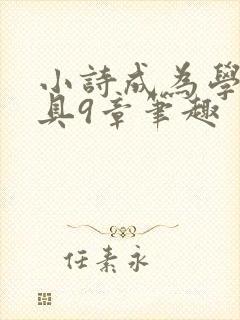 小詩成為學
具9章筆趣
任素永